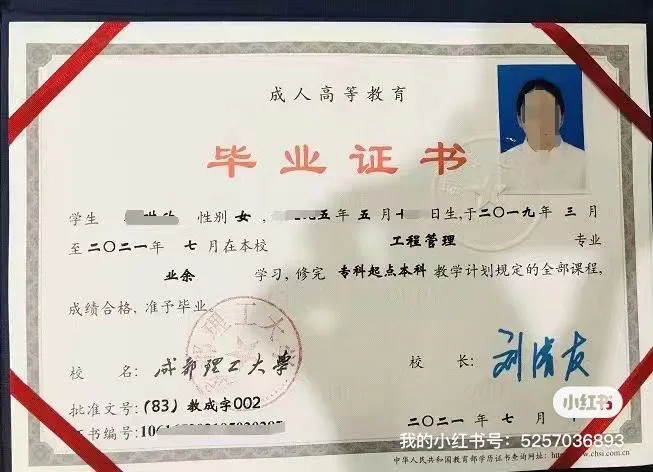 成人高等教育
毕业证书
学生 性别 女 , 五年 五 月 日生,于二〇一九年 三 月
至二〇二一年 七 月在本校 工程管理 专业
业余 学习,修完 专科起点本科 教学计划规定的全部课程,
成绩合格,准予毕业。
校 名: 成都理工大学 校 长: 刘清友
批准文号:(83)教成字002
二〇二一年 七 月
证书编号:
小红书
我的小红书号:5257036893
中华人民共和国教育部学历证书查询网址:http://www.chsi.com.cn